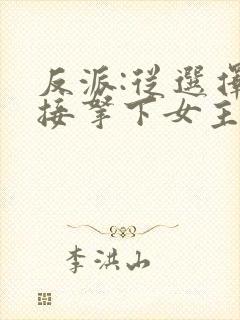 反派:從選擇
接拏下女主
李洪山